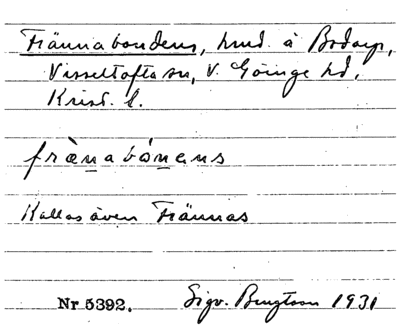 Frännabondens, hmd. å Bodarp,
Visseltofta sn, V. Göinge hd,
Krist. l.
frànabónens
Kallas även Frännas
Nr 5392. Sigv. Bengtson 1931